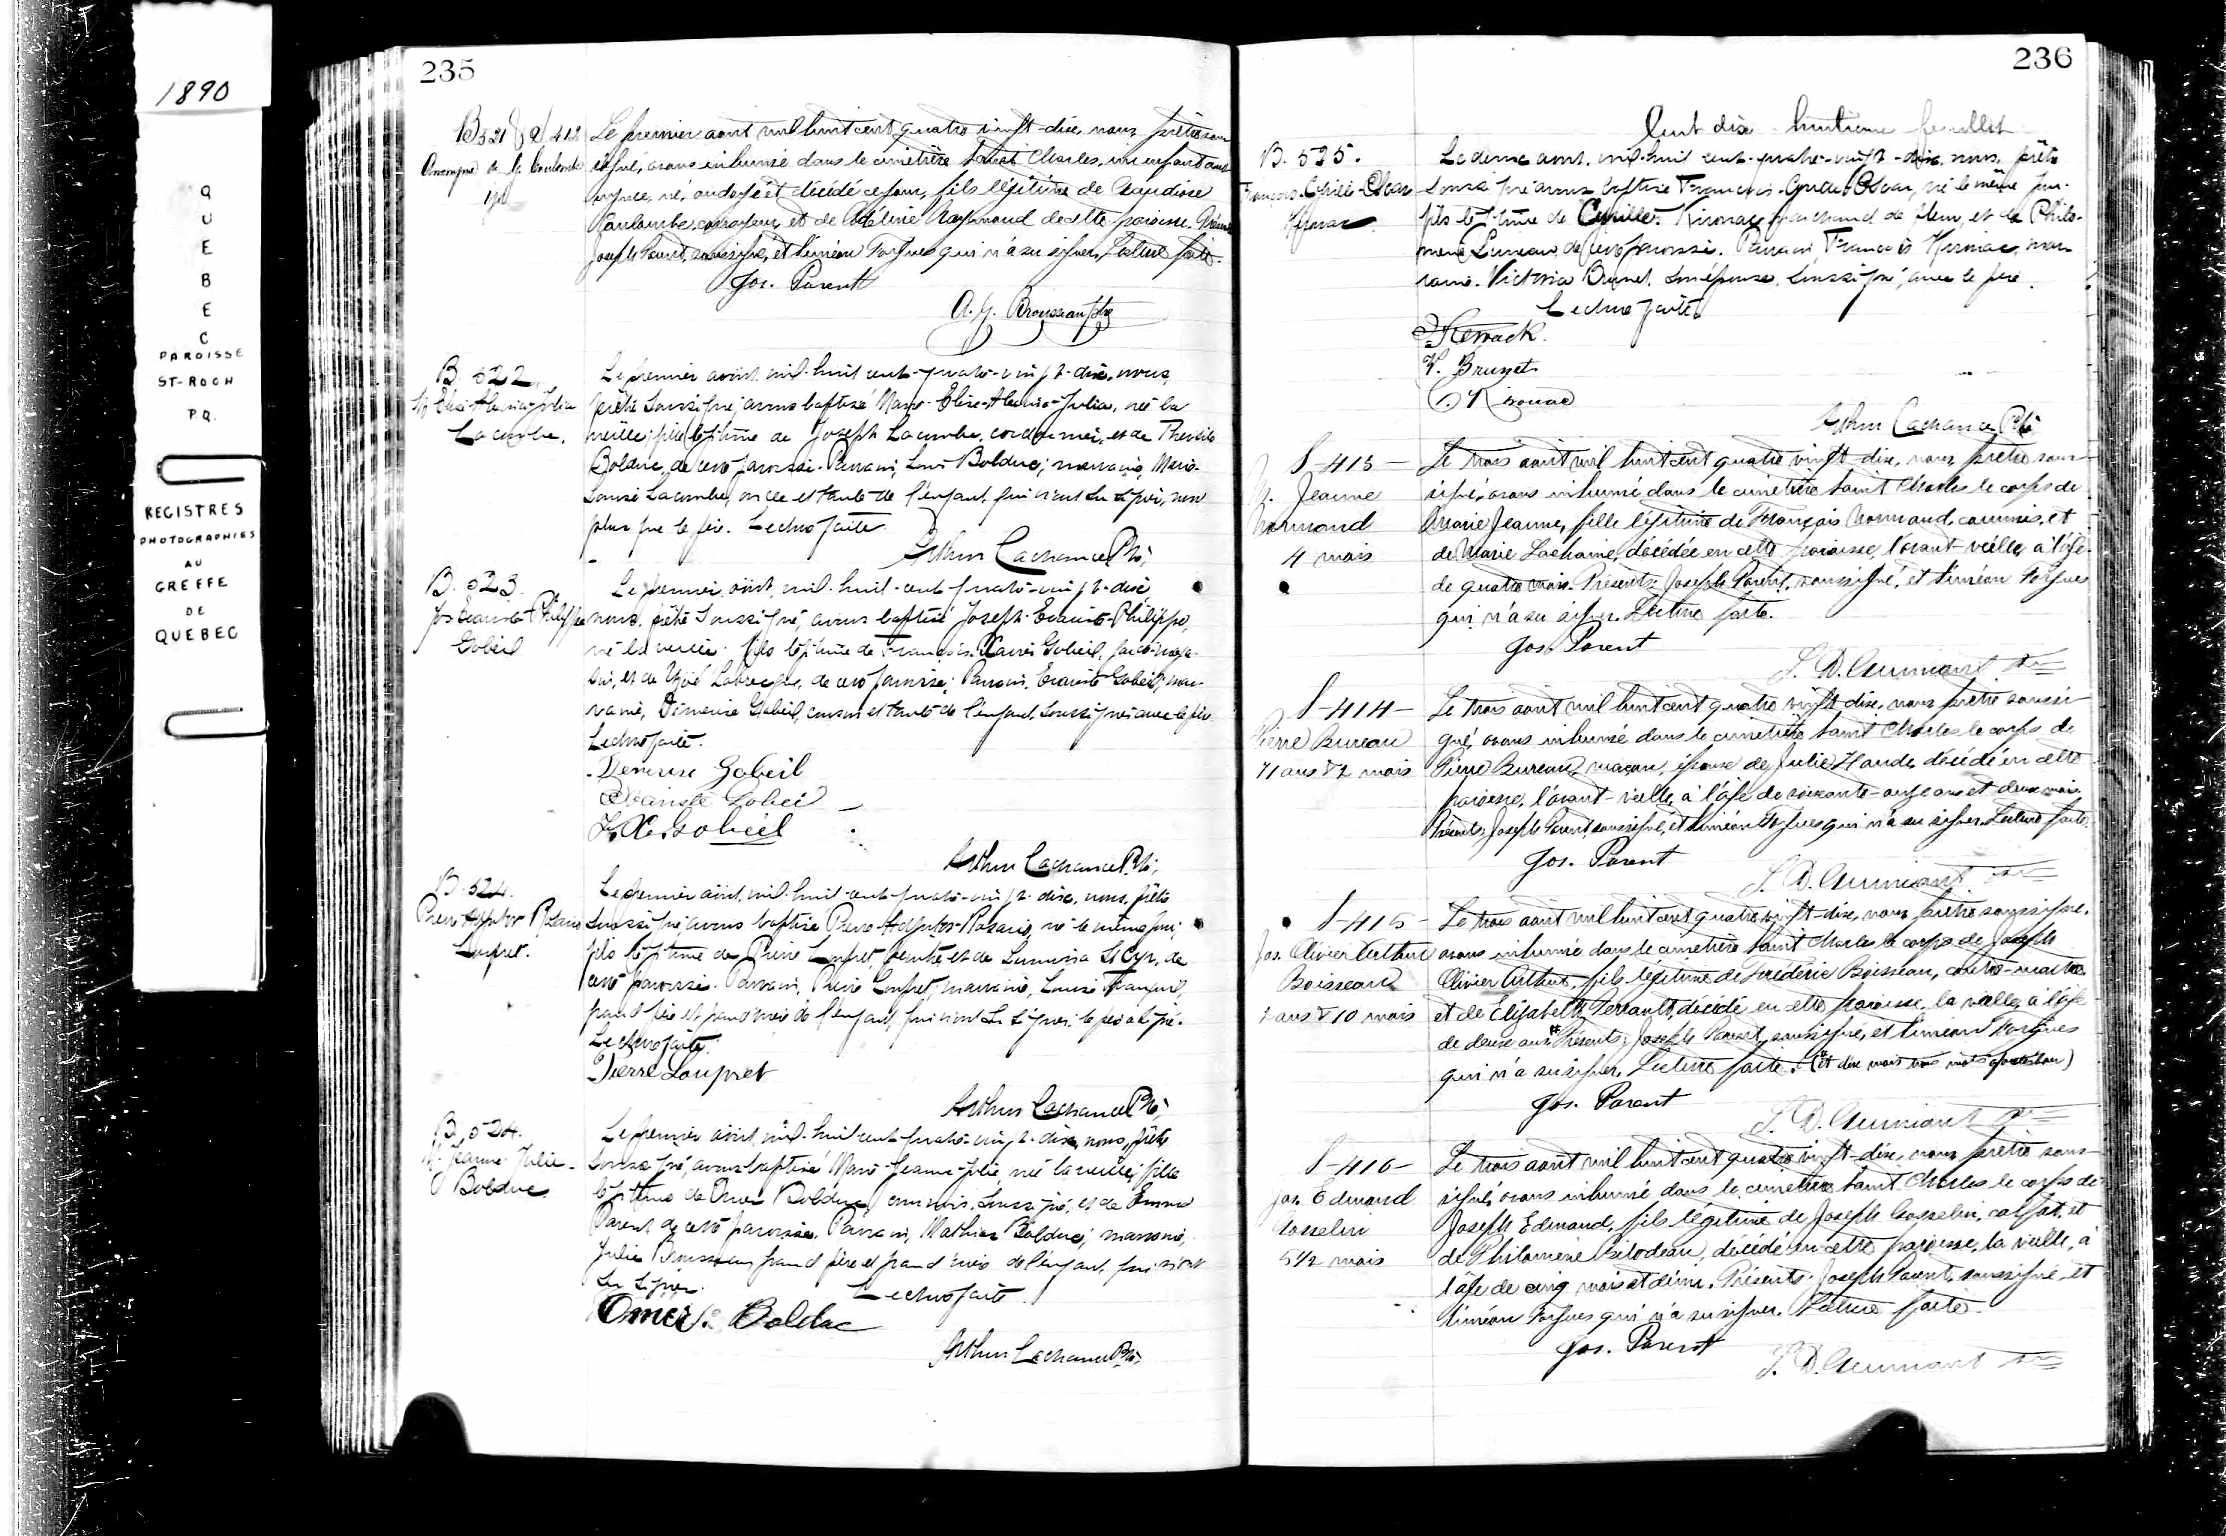 1890
QUEBEC
PAROISSE
ST-ROCH
P.Q.
REGISTRES
PHOTOGRAPHIES
AU
GREFFE
DE
QUEBEC
235
B 521 & S 412
Anonyme de G. Coulombe
1 jr
Le premier août mil huit cent quatre vingt-dix, nous prêtre sous-
signé, avons inhumé dans le cimetière Saint Charles, un enfant ano-
nyme, né, ondoyé et décédé ce jour, fils légitime de
Coulombe, et de Adeline Raymond de cette paroisse. Présents
Joseph Parent, soussigné, et Siméon Forgues qui n'a su signer. Lecture faite.
Jos. Parent
A. G. Brousseau Ptre
B. 522.
M. Elise-Alexina-Julia
Lacombe.
Le premier août, mil-huit-cent-quatre-vingt-dix, nous,
prêtre soussigné, avons baptisé Marie-Elise-Julia, née la
veille, fille légitime de Joseph Lacombe, cordonnier, et de
Bolduc, de cette paroisse. Parrain, Louis Bolduc; marraine, Marie-
Louise Lacombe, oncle et tante de l'enfant, qui n'ont su signer, non
plus que le père. Lecture faite
Arthur Lachance Ptre
B. 523.
Jos Evariste Philippe
Gobeil
Le premier août, mil-huit-cent-quatre-vingt-dix,
nous, prêtre soussigné, avons baptisé Joseph-Evariste-Philippe,
né la veille, fils légitime de François-Xavier Gobeil,
et de Labrecque, de cette paroisse; Parrain, Evariste Gobeil; mar-
raine, Démerise Gobeil, cousin et tante de l'enfant, soussignés avec le père
Lecture faite.
Demerise Gobeil
Evariste Gobeil
F. X. Gobeil
Arthur Lachance Ptre
B. 524.
Pierre Rosario
Loupret.
Le premier août, mil-huit-cent-quatre-vingt-dix, nous, prêtre
soussigné, avons baptisé Pierre-Rosario, né le même jour,
fils légitime de Pierre Loupret, peintre et de St Cyr, de
cette paroisse. Parrain, Pierre Loupret, marraine, Louise
grand père et grand'mère de l'enfant, qui n'ont su signer. le père a signé.
Lecture faite.
Pierre Loupret
Arthur Lachance Ptre
B. 524.
M. Jeanne Julie
Bolduc
Le premier août, mil-huit-cent-quatre-vingt-dix, nous, prêtre
soussigné, avons baptisé Marie-Jeanne-Julie, née la veille, fille
légitime de Omer Bolduc, commis, soussigné, et de Emma
Parent de cette paroisse. Parrain, Mathias Bolduc, marraine,
Julie Rousseau grand père et grand'mère de l'enfant, qui n'ont
su signer. Lecture faite.
Omer Bolduc
Arthur Lachance Ptre
236
Cent dix-huitième feuillet
B. 525.
François-Cyrille-Oscar
Kirouac.
Le deux août, mil-huit-cent-quatre-vingt-dix, nous, prêtre
soussigné avons baptisé François-Cyrille-Oscar, né le même jour
fils légitime de Cyrille Kirouac, marchand de fleur, et de Philo-
mène de cette paroisse. Parrain, François Kirouac, mar-
raine, Victoria Brunet, son épouse, soussignés, avec le père.
Lecture faite
F. Kerouack.
V. Brunet
C. Kirouac
Arthur Lachance Ptre
S-413-
M. Jeanne
Normand
4 mois
Le trois août mil huit cent quatre vingt-dix, nous prêtre sous-
signé, avons inhumé dans le cimetière Saint Charles le corps de
Marie Jeanne, fille légitime de François Normand, commis, et
de Marie Lachaine, décédée en cette paroisse, l'avant-veille, à l'âge
de quatre mois. Présents: Joseph Parent, soussigné, et Siméon Forgues
qui n'a su signer. Lecture faite.
Jos. Parent
S-414-
Pierre Bureau
71 ans & 2 mois
Le trois août mil huit cent quatre vingt-dix, nous prêtre soussi-
gné, avons inhumé dans le cimetière Saint Charles le corps de
Pierre Bureau, maçon, époux de Julie décédé en cette
paroisse, l'avant-veille, à l'âge de soixante-onze ans et deux mois.
Présents, Joseph Parent, soussigné, et Siméon Forgues qui n'a su signer. Lecture faite.
Jos. Parent
S-415-
Jos. Olivier Arthur
Boisseau
2 ans & 10 mois
Le trois août mil huit cent quatre vingt-dix, nous prêtre soussigné,
avons inhumé dans le cimetière Saint Charles le corps de Joseph
Olivier Arthur, fils légitime de Frédéric Boisseau, contre-maître
et de Elisabeth Perrault, décédé en cette paroisse, la veille, à l'âge
de deux ans. Présents: Joseph Parent, soussigné, et Siméon Forgues
qui n'a su signer. Lecture faite. (et dix mois
Jos. Parent
S-416-
Jos. Edmond
Gosselin
5 1/2 mois
Le trois août mil huit cent quatre vingt-dix, nous prêtre sous-
signé, avons inhumé dans le cimetière Saint Charles le corps de
Joseph Edmond, fils légitime de Joseph Gosselin, calfat, et
de Philomène Bilodeau, décédé en cette paroisse, la veille, à
l'âge de cinq mois et demi. Présents: Joseph Parent, soussigné, et
Siméon Forgues qui n'a su signer. Lecture faite.
Jos. Parent